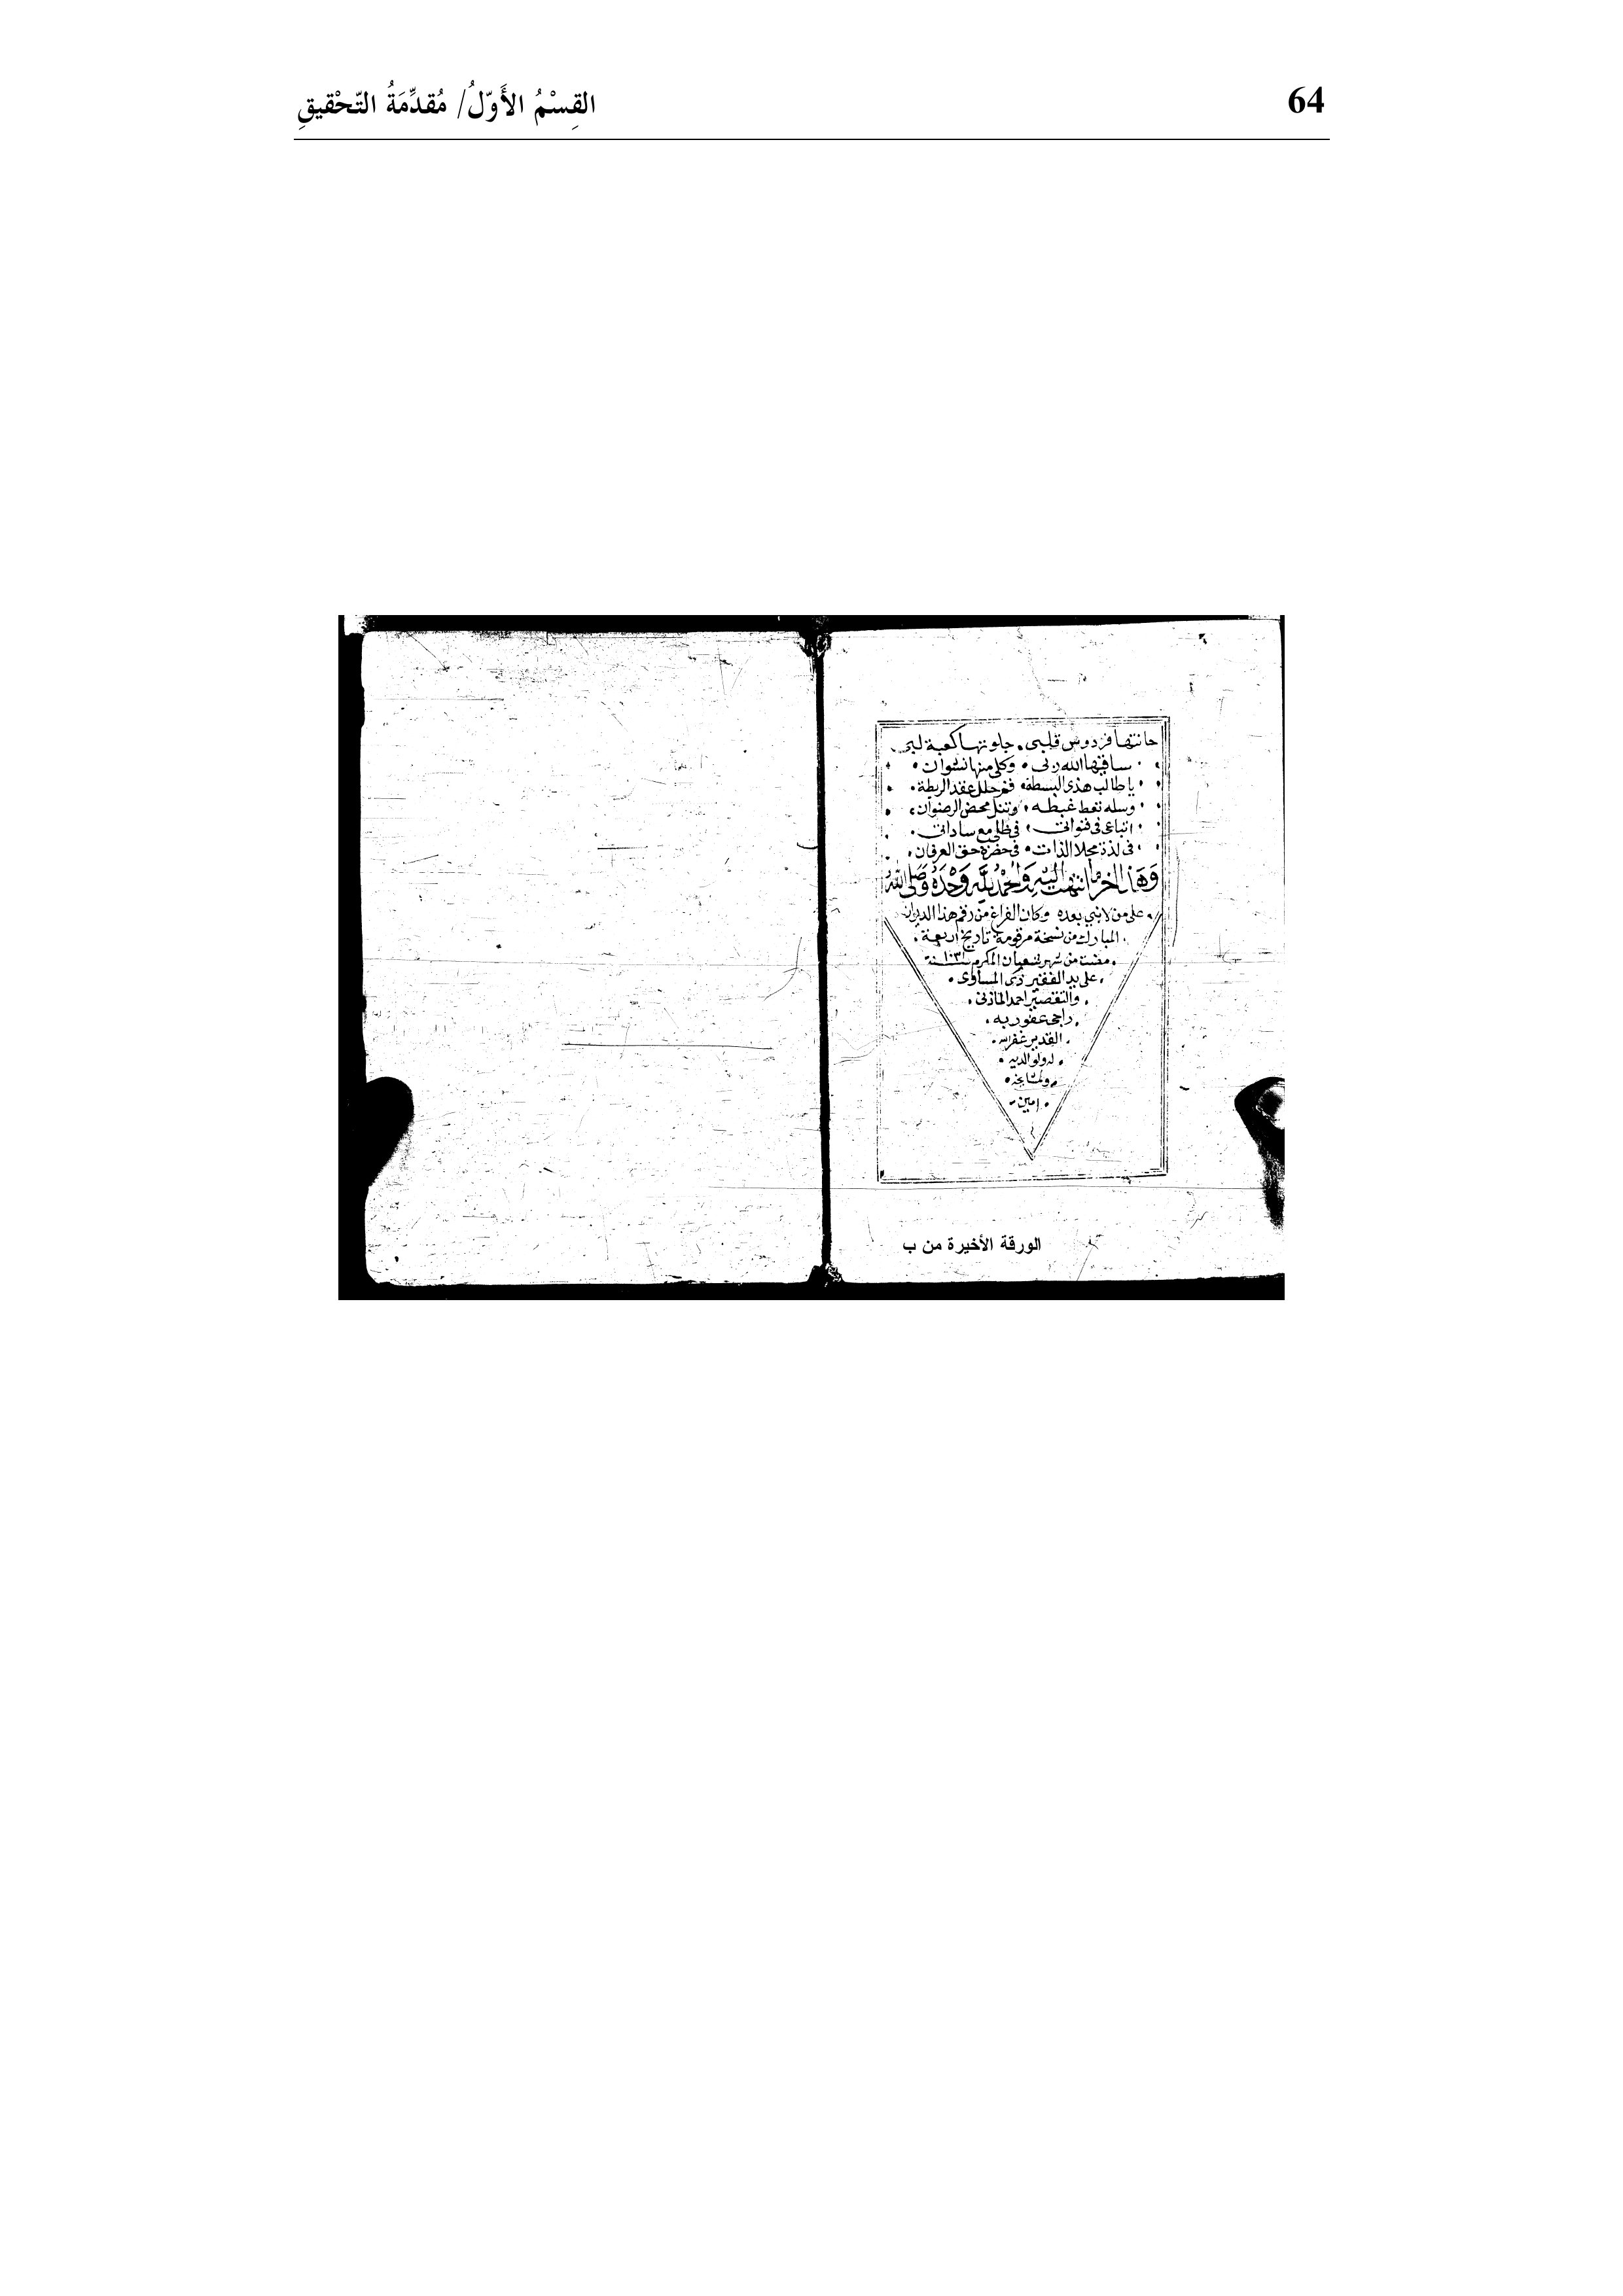 64
القِسْمُ الأَوّلُ/ مُقدِّمَةُ التّحْقيقِ
حانتها فردوس قلبى جلوتها كعبة لبى
ساقيها الله ربى وكلى منها نشوان
يا طالب هذى البسطة قم حلل عقد الربطة
وسله تعط غبطه وتنل محض الرضوان
اتباعى فى فى ظلى مع ساداتى
فى لذة مجلا الذات فى حضرة حق العرفان
وهذا اخر ما انتهت اليه والحمد لله وحده وصلى الله
على من لا نبي بعده وكان الفراغ من رقم هذا الديوان
المبارك من نسخة مرقومة تاريخ اربعة
مضت من شهر شعبان المكرم سنة
على يد الفقير ذى المساوى
والتقصير احمد المازنى
راجى عفو ربه
القدير غفر الله
له ولوالديه
ولمشايخه
امين
الورقة الأخيرة من ب